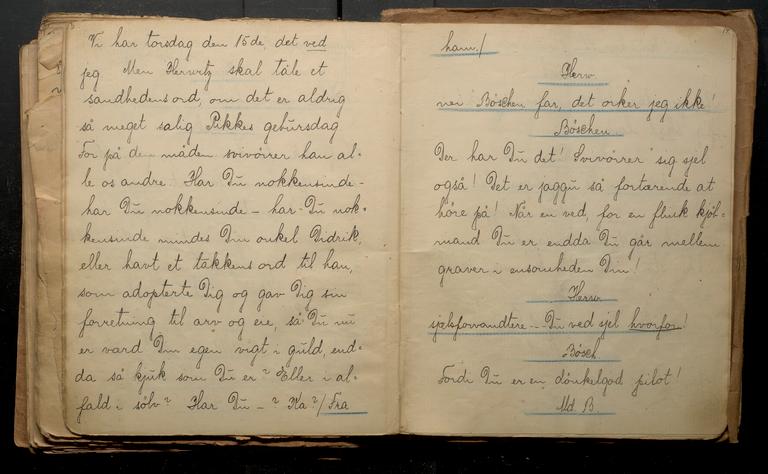 Vi har torsdag den 15de, det ved
jeg. Men Herwitz skal tåle et
sandhedens ord, om det er aldrig
så meget salig Pikkes gebursdag
For på den måden svivôirer han al-
le os andre. Har Du nokkensinde-
har Du nokkensinde – har Du nok-
kensinde mindes Din onkel Didrik,
eller havt et takkens ord til han,
som adopterte Dig og gav Dig sin
forretning til arv og eie, så Du nu
er værd Din egen vigt i guld, end-
da så kjuk som Du er? Eller i al-
fald i sølv? Har Du – ? Ka? / Fra
ham. /
Herw.
nei Böschen far, det orker jeg ikke!
Böschen.
Der har Du det! Svivôirer sig sjel
også! Det er jaggu så fortærende at
höre på! Når en ved, for en flink kjöb-
mand Du er endda Du går mellem
graver i ensomheden Din!
Herw
sjelsforvandtere --- Du ved sjel hvorfor!
Bösch.
Fordi Du er en dönkelgod pilot!
Md. B.